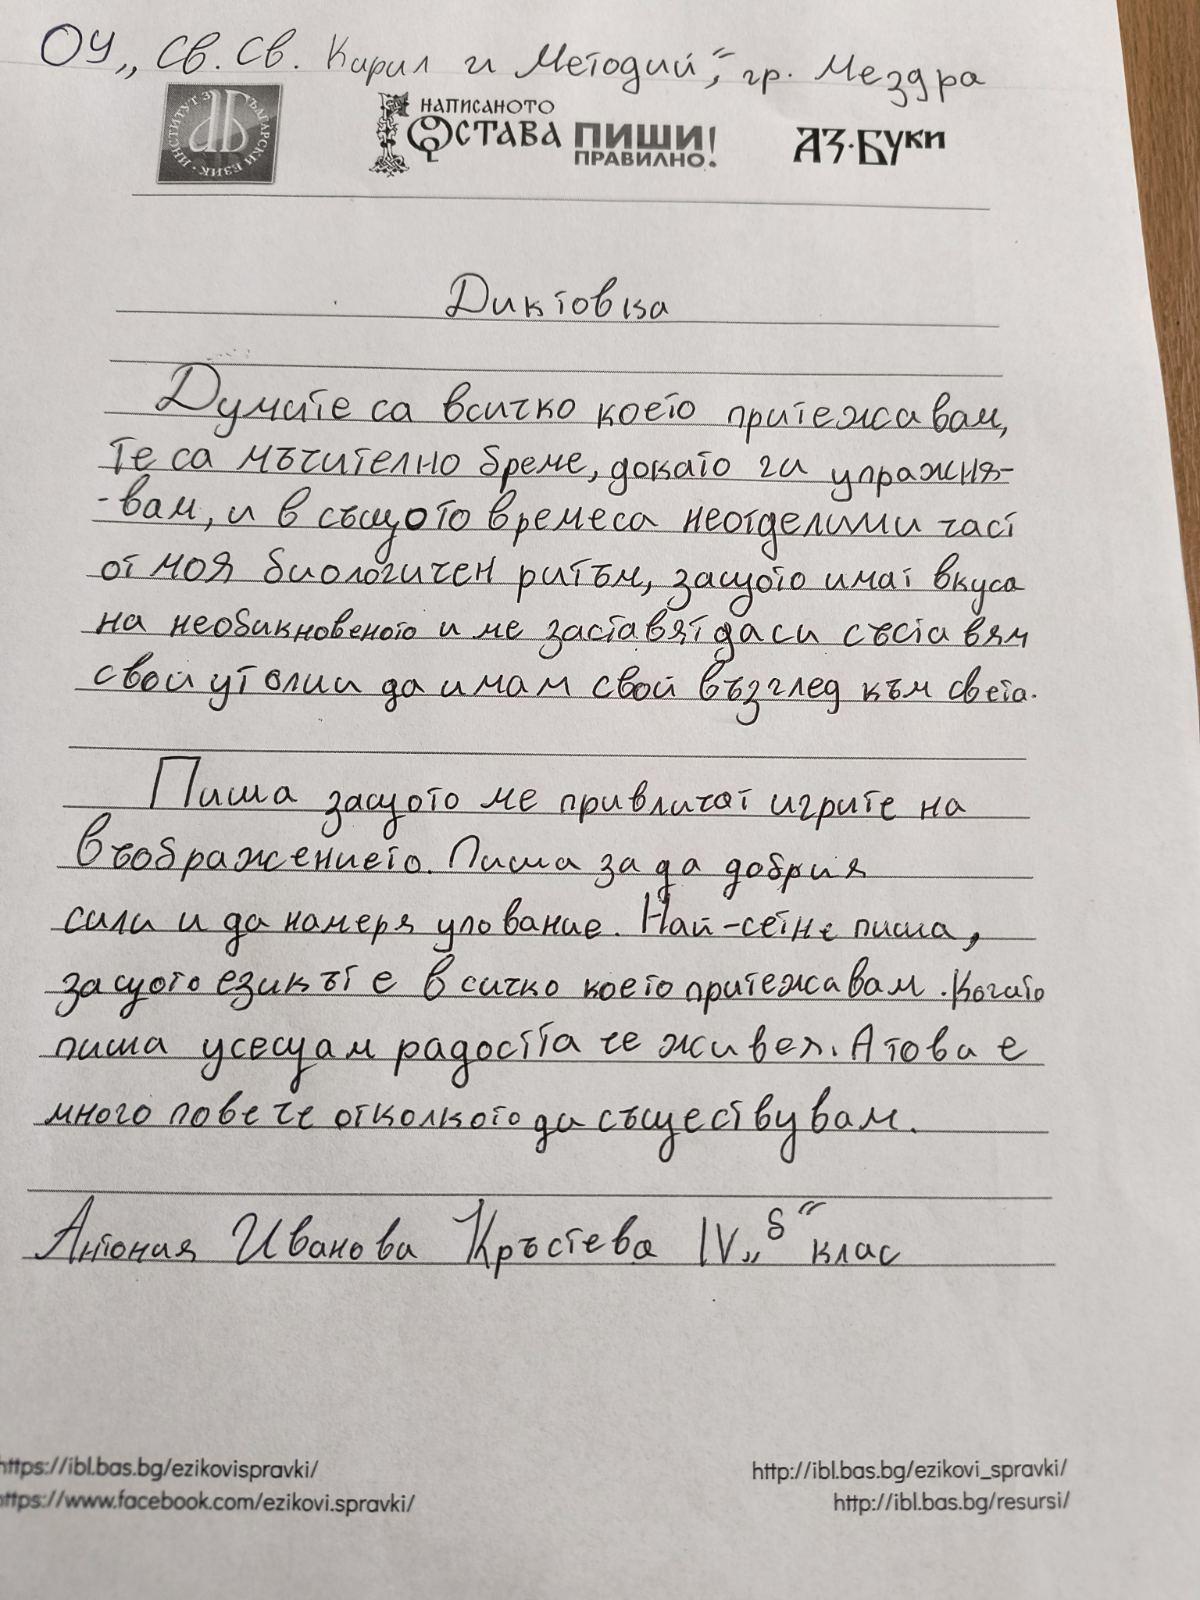 ОУ „Св. Св. Кирил и Методий“, гр. Мездра
ИНСТИТУТ ЗА БЪЛГАРСКИ ЕЗИК
НАПИСАНОТО
ОСТАВА
ПИШИ!
ПРАВИЛНО!
АЗ·БУКИ
Диктовка
Думите са всичко което притежавам,
те са мъчително бреме, докато ги упражня-
-вам, и в същото времеса неотделими част
от моя биологичен ритъм, защото имат вкуса
на необикновеното и ме заставят да си съставям
свои утопии да имам свой възглед към света.
Пиша защото ме привличат игрите на
въображението. Пиша за да добрия
сили и да намеря упование. Най-сетне пиша,
защото езикът е всичко което притежавам. Когато
пиша усещам радостта че живея. А това е
много повече отколкото да съществувам.
Антония Иванова Кръстева IV „б“ клас
https://ibl.bas.bg/ezikovispravki/
http://ibl.bas.bg/ezikovi_spravki/
https://www.facebook.com/ezikovi.spravki/
http://ibl.bas.bg/resursi/